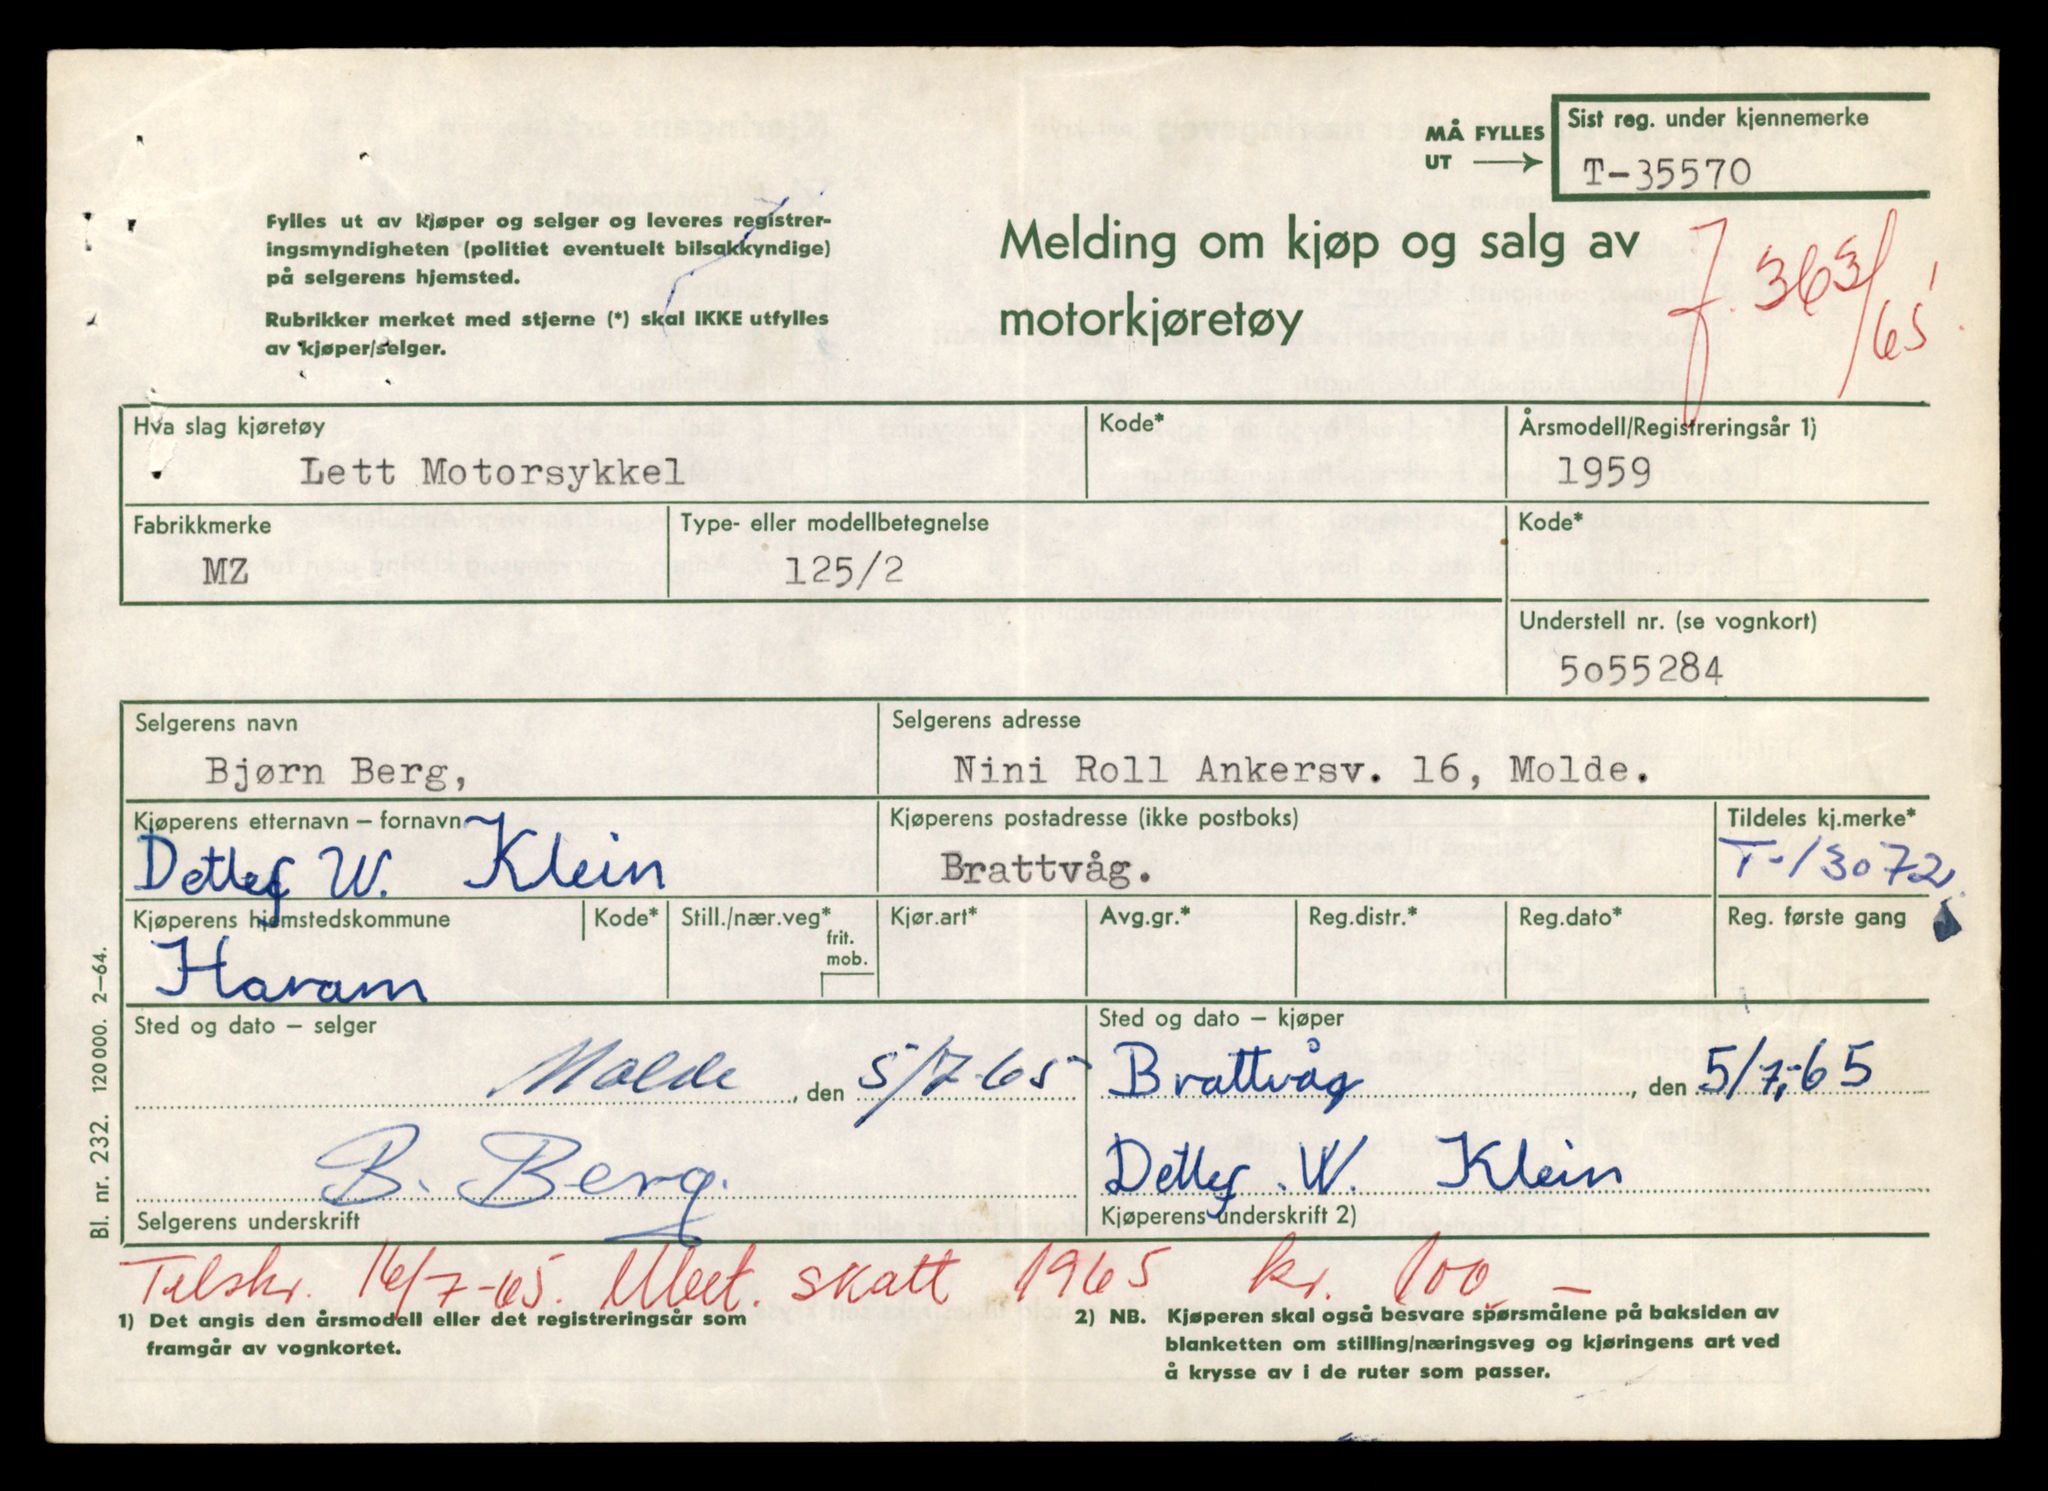 MÅ FYLLES
UT
Sist reg. under kjennemerke
T-35570
Fylles ut av kjøper og selger og leveres registrer-
ingsmyndigheten (politiet eventuelt bilsakkyndige)
på selgerens hjemsted.
Rubrikker merket med stjerne (*) skal IKKE utfylles
av kjøper/selger.
Melding om kjøp og salg av
motorkjøretøy
f. 363/65
Hva slag kjøretøy
Lett Motorsykkel
Kode*
Årsmodell/Registreringsår 1)
1959
Fabrikkmerke
MZ
Type- eller modellbetegnelse
125/2
Kode*
Understell nr. (se vognkort)
5o55284
Selgerens navn
Bjørn Berg,
Selgerens adresse
Nini Roll Ankersv. 16, Molde.
Kjøperens etternavn – fornavn
Detlef W. Klein
Kjøperens postadresse (ikke postboks)
Brattvåg.
Tildeles kj.merke*
T-13072
Kjøperens hjemstedskommune
Haram
Kode*
Still./nær.veg*
frit.
mob.
Kjør.art*
Avg.gr.*
Reg.distr.*
Reg.dato*
Reg. første gang
Sted og dato – selger
Molde, den 5/7-65
Sted og dato – kjøper
Brattvåg, den 5/7-65
B. Berg.
Selgerens underskrift
Detlef. W. Klein
Kjøperens underskrift 2)
Bl. nr. 232. 120 000. 2–64.
Tilskr. 16/7-65. skatt 1965 kr. 100,-
1) Det angis den årsmodell eller det registreringsår som
framgår av vognkortet.
2) NB. Kjøperen skal også besvare spørsmålene på baksiden av
blanketten om stilling/næringsveg og kjøringens art ved
å krysse av i de ruter som passer.